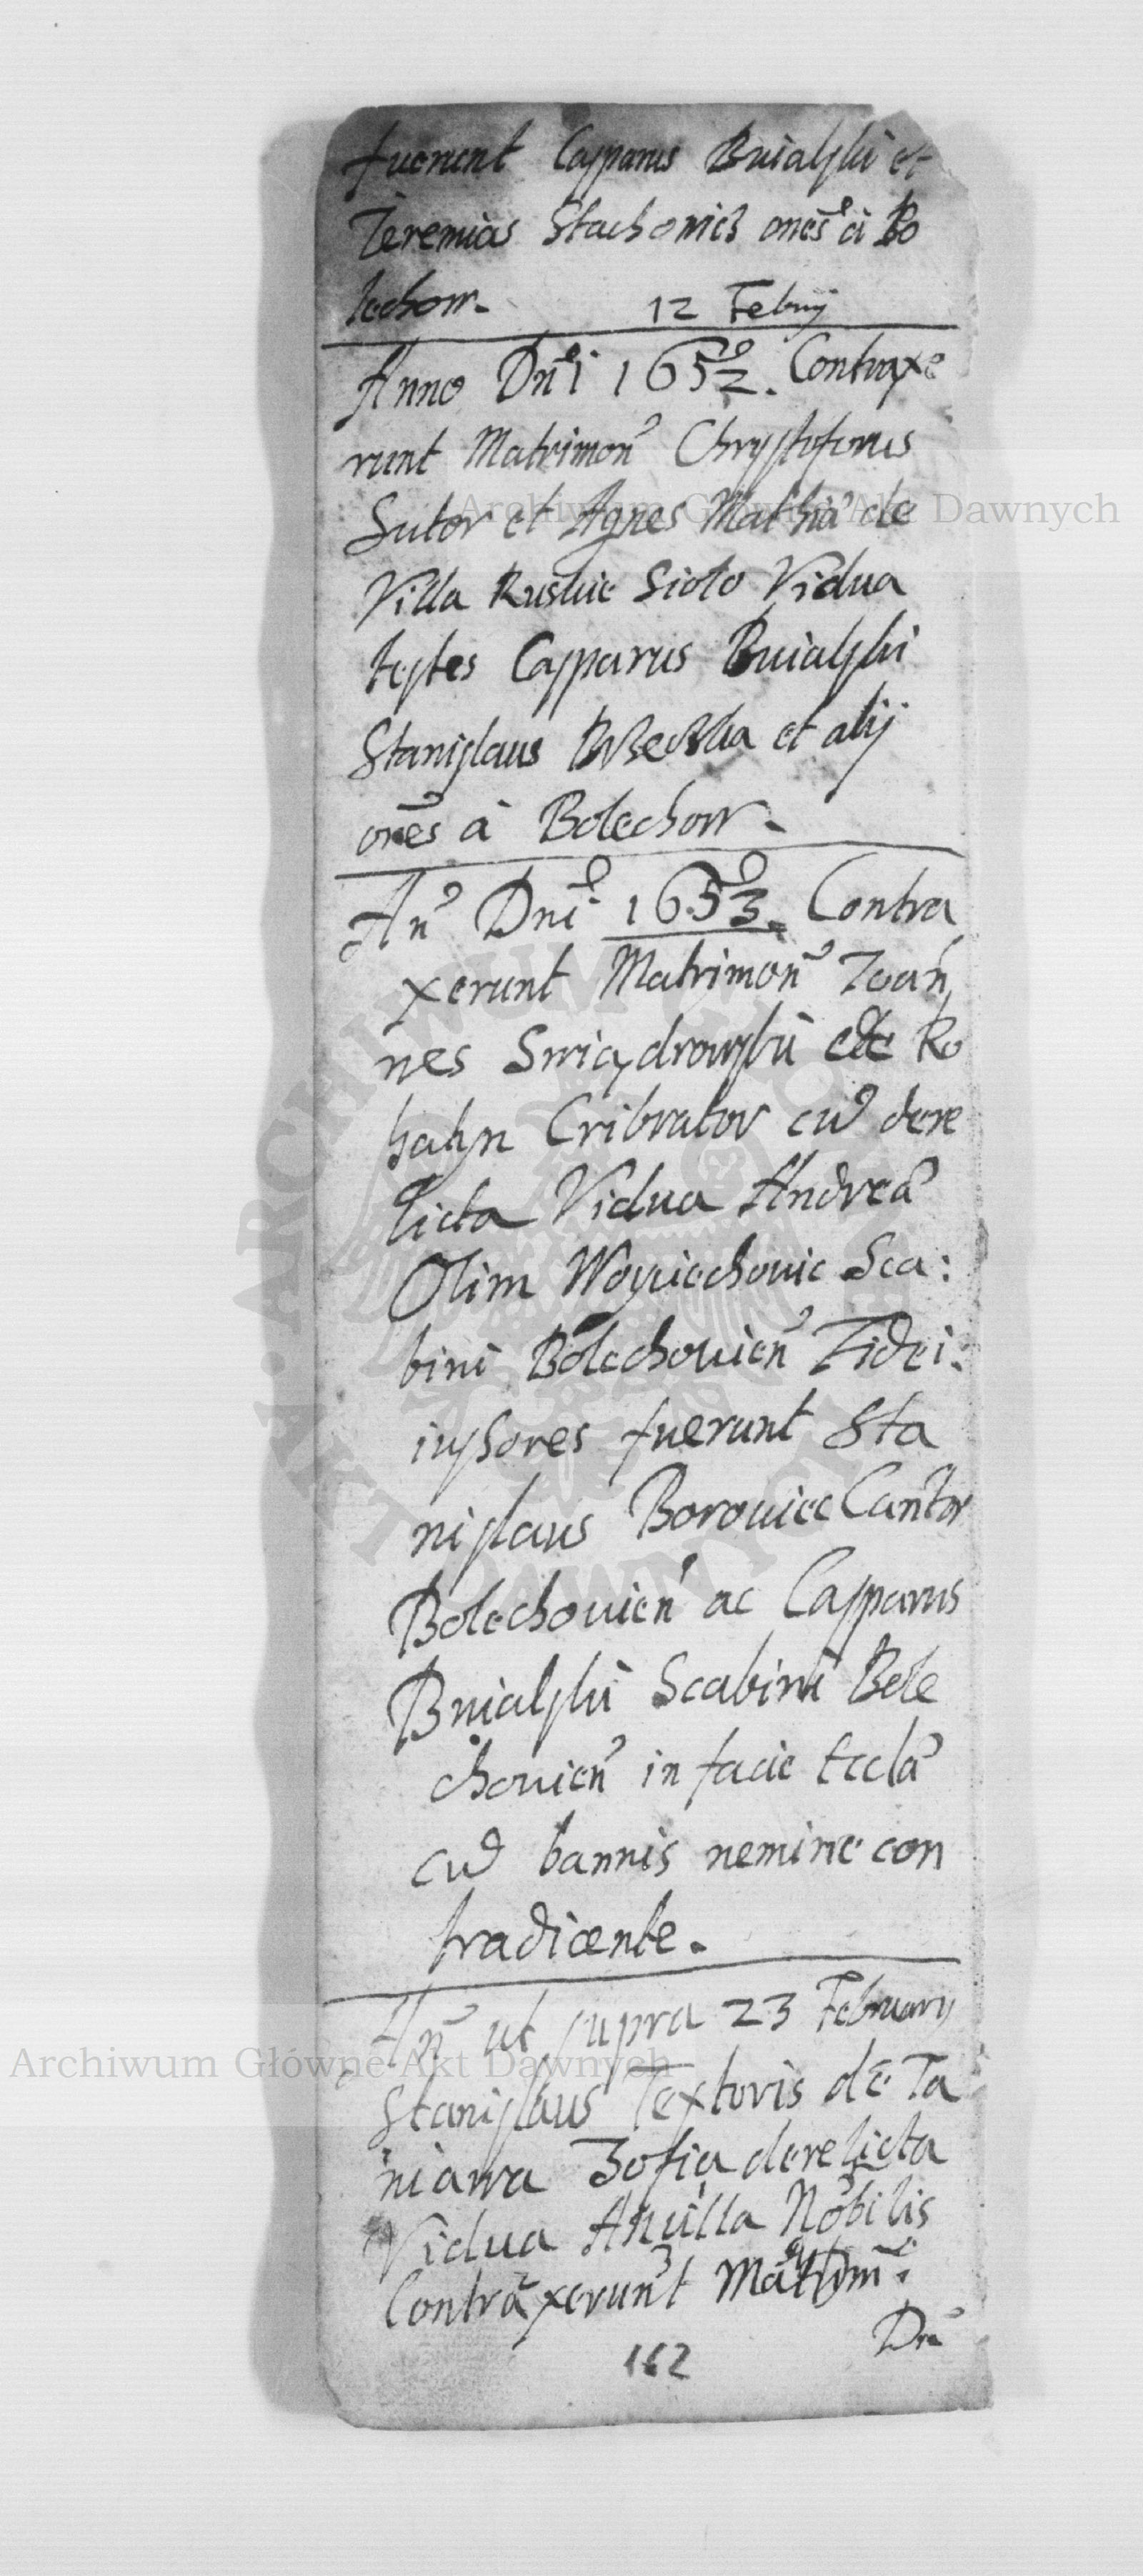 fuerunt Casparus Buialski et
Jeremias Stachowicz ones a Bo
lechow.
12 Febrij
Anno Dni 1652. Contraxe
runt Matrimon Chrystoforus
Sutor et Agnes Mathia de
Villa Ruskie Sioło Vidua
testes Casparus Buialski
Stanislaus et alij
ones à Bolechow.
An Dni 1653. Contra
xerunt Matrimon Joan
nes de Ro
hatyn Cribrator cu dere
licta Vidua Andrea
Olim Woyciechowic Sca:
bini Bolechouien Fidei:
iussores fuerunt Sta
nislaus Borouiec Cantor
Bolechouien ac Casparus
Buialski Scabini Bole
chouien in facie Eccla
cu bannis nemine con
tradicente.
An ut supra 23 February
Stanislaus Textoris de Ta
niawa Zofia derelicta
Vidua Ancilla Nobilis
Contraxerunt Matrim.
162
Archiwum Główne Akt Dawnych
Archiwum Główne Akt Dawnych
ARCHIWUM GŁÓWNE AKT DAWNYCH